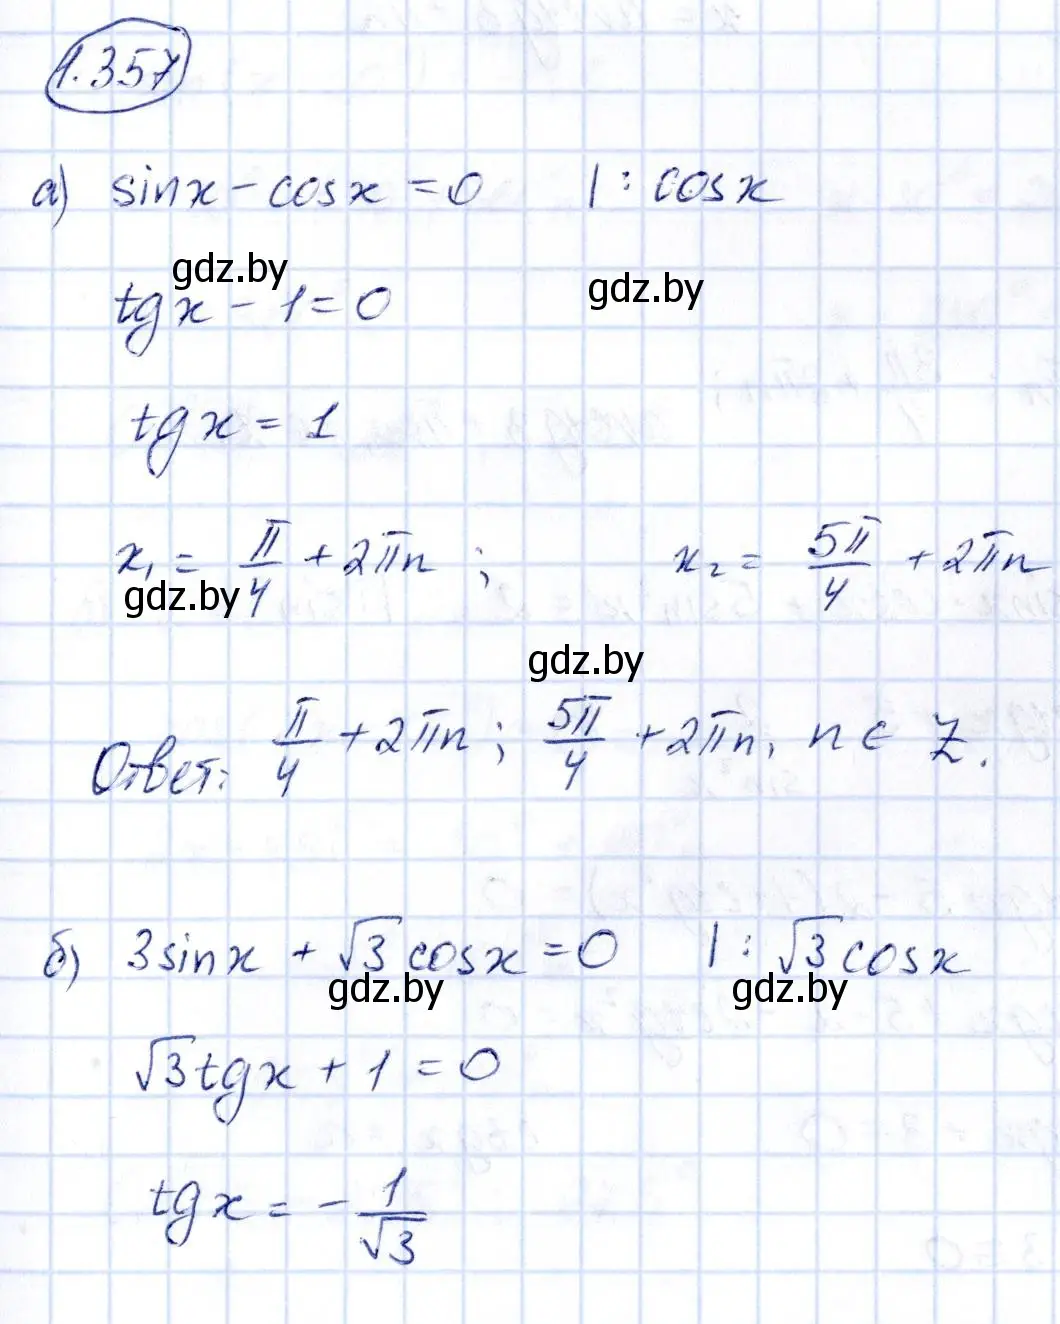 1.357
а) sinx - cosx = 0 | : cosx
gdz.by
gdz.by
tgx - 1 = 0
tgx = 1
x₁ = π/4 + 2πn ; x₂ = 5π/4 + 2πn
gdz.by
gdz.by
Ответ: π/4 + 2πn ; 5π/4 + 2πn, n ∈ Z.
б) 3sinx + √3 cosx = 0 | : √3 cosx
gdz.by
gdz.by
√3 tgx + 1 = 0
tgx = - 1/√3